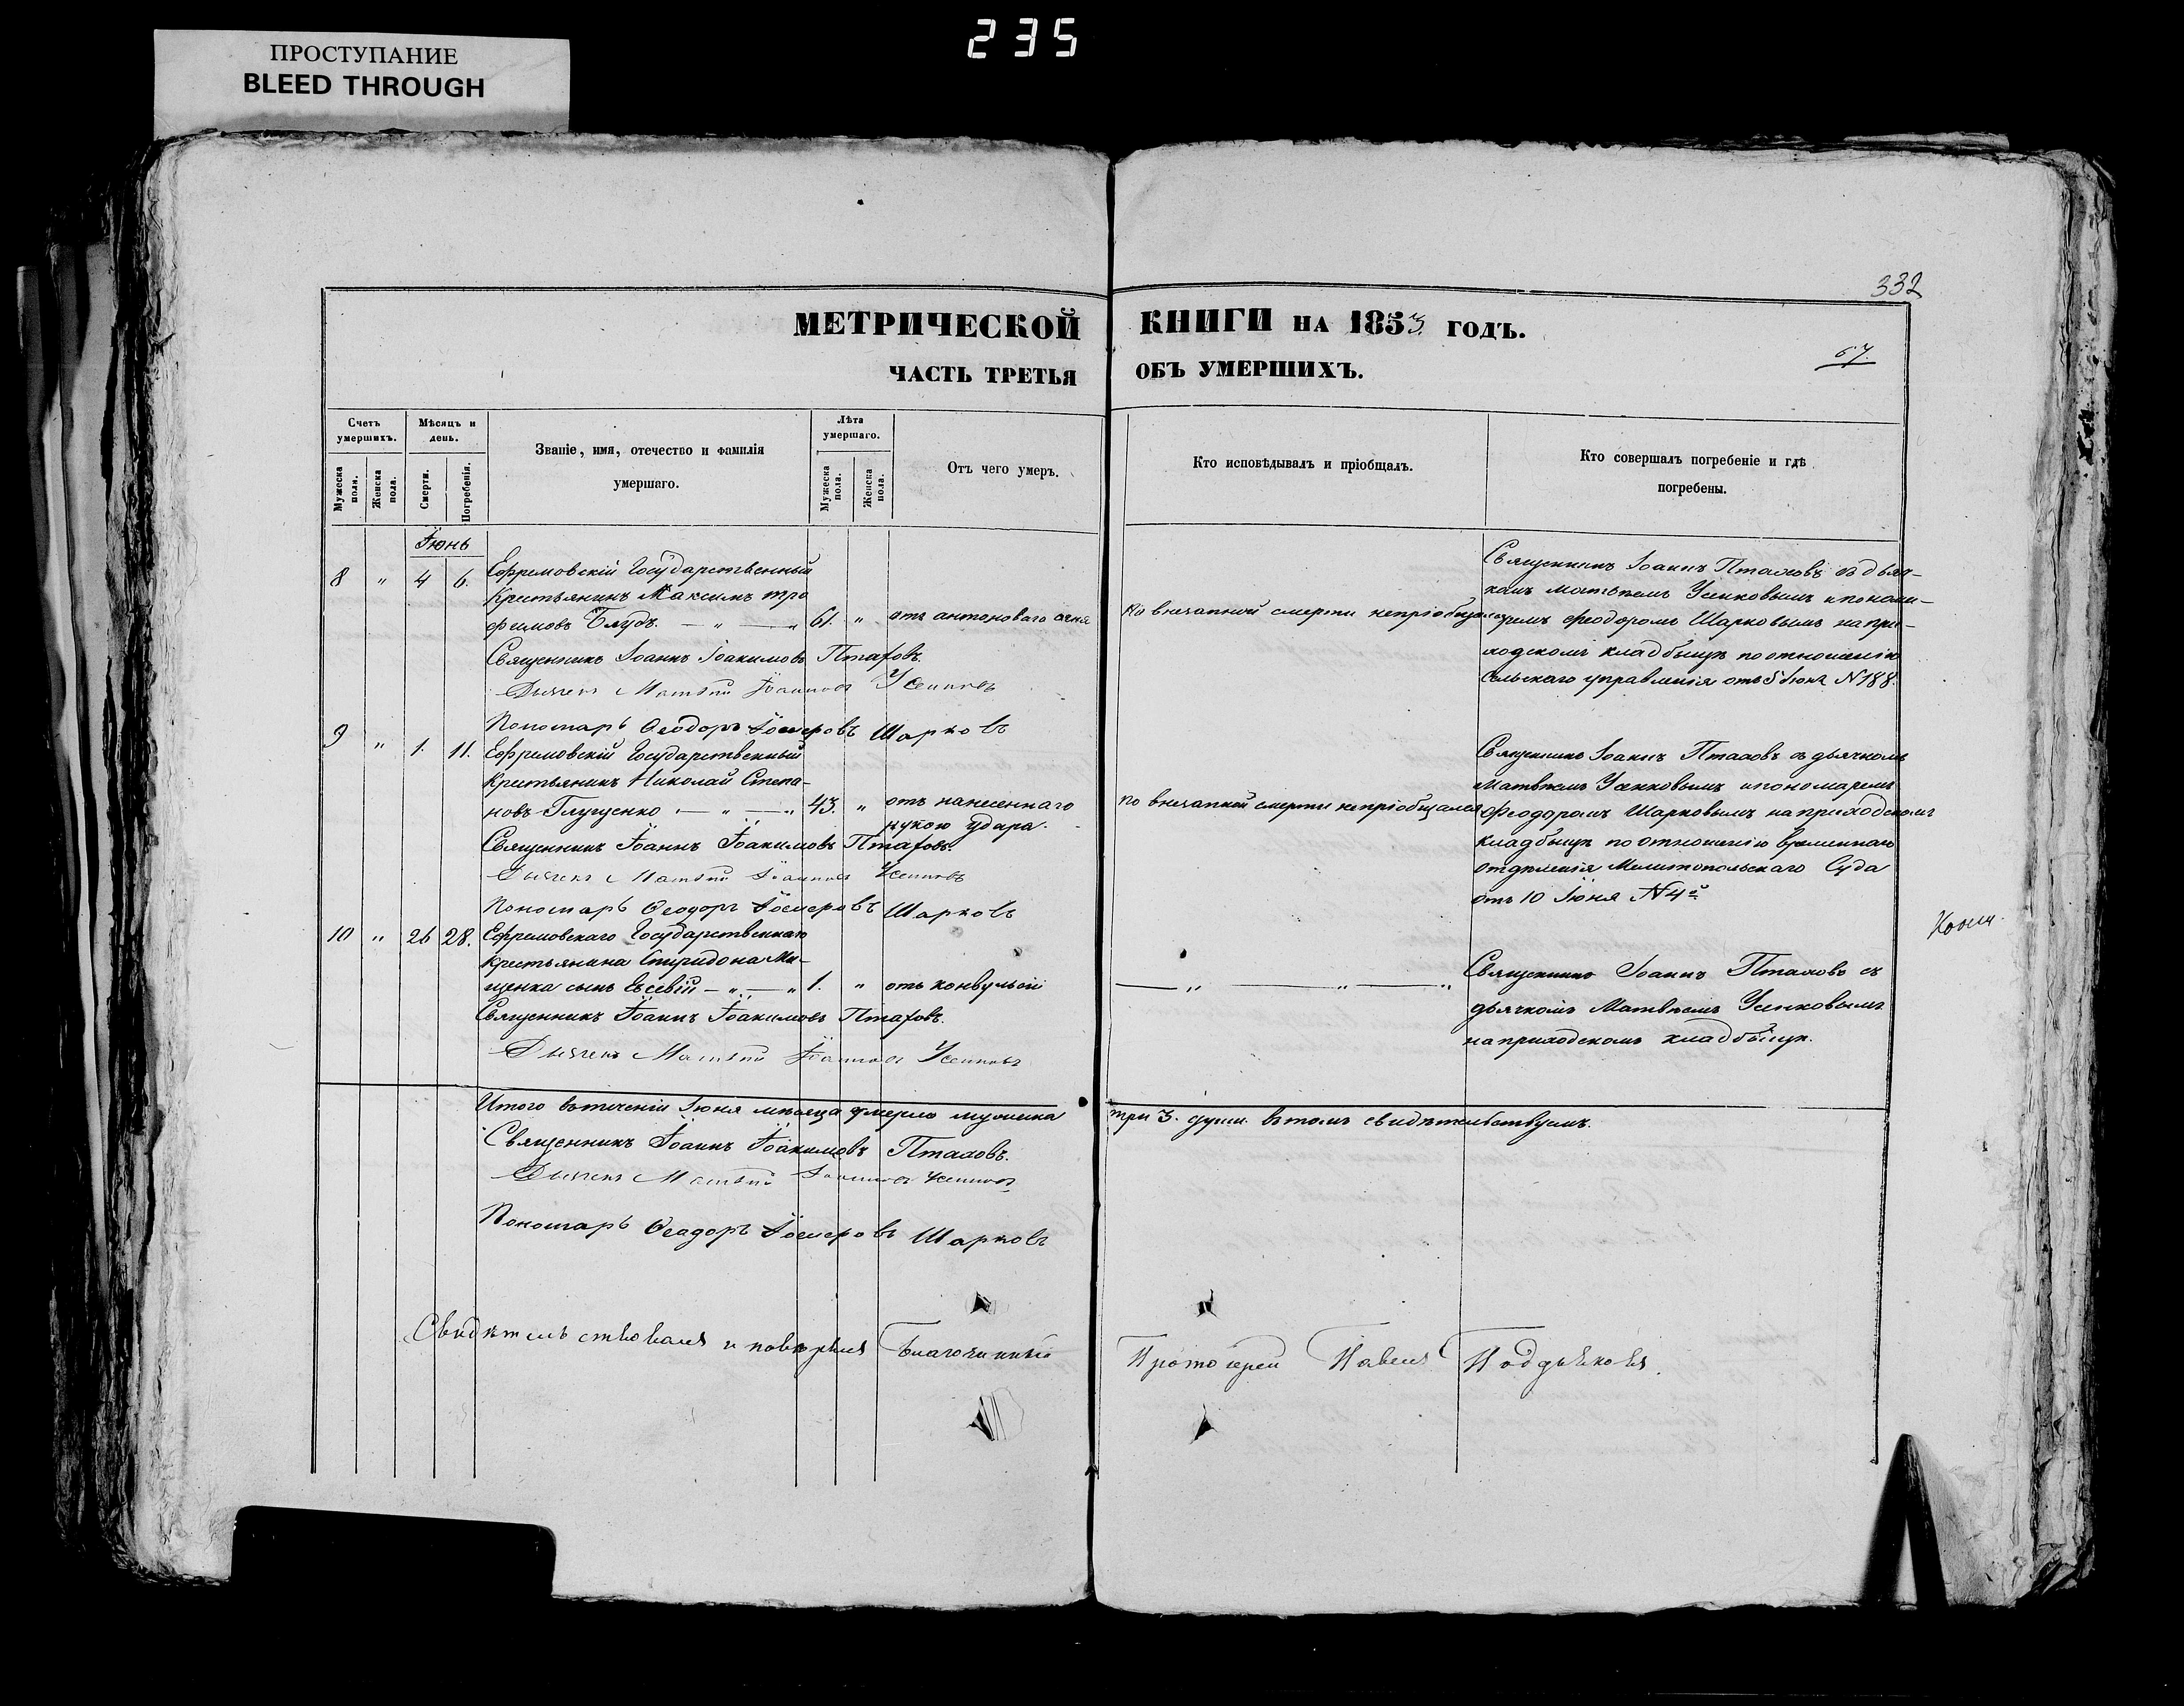 235
ПРОСТУПАНИЕ
BLEED THROUGH
332
МЕТРИЧЕСКОЙ КНИГИ НА 1853 ГОДЪ.
67.
ЧАСТЬ ТРЕТЬЯ ОБЪ УМЕРШИХЪ.
Счетъ умершихъ.
Мужеска пола.
Женска пола.
Мѣсяцъ и день.
Смерти.
Погребенія.
Званіе, имя, отечество и фамилія
умершаго.
Лѣта умершаго.
Мужеска пола.
Женска пола.
Отъ чего умеръ.
Кто исповѣдывалъ и пріобщалъ.
Кто совершалъ погребеніе и гдѣ
погребены.
Іюнь
8 " 4 6. Ефремовскій Государственный
Крестьянинъ Максимъ тро
фимовъ Блудъ. — " — " 61. " отъ антоноваго огня
По внезапной смерти непріобщался
Священникъ Іоаннъ Птаховъ съ дьяч-
комъ Матвѣемъ Усенковымъ и понома-
ремъ Феодоромъ Шарковымъ на при-
ходскомъ кладбищѣ по отношенію
Сельскаго управленія отъ 5 Іюня N 188.
Священникъ Іоаннъ Іоакимовъ Птаховъ.
Дьячекъ Матвѣй Іоанновъ Усенковъ
Пономарь Ѳеодоръ Шарковъ
9 " 1. 11. Ефремовскій Государственный
Крестьянинъ Николай Степа-
новъ Глущенко — " — " 43. " отъ нанесеннаго
рукою удара.
по внезапной смерти непріобщался
Священникъ Іоаннъ Птаховъ съ дьячкомъ
Матвѣемъ Усенковымъ и пономаремъ
Феодоромъ Шарковымъ на приходскомъ
кладбищѣ по отношенію временнаго
отдѣленія Мелитопольскаго Суда
отъ 10 Іюня N 4й
Священникъ Іоаннъ Іоакимовъ Птаховъ.
Дьячекъ Матвѣй Іоанновъ Усенковъ
Пономарь Ѳеодоръ Шарковъ
10 " 26 28. Ефремовскаго Государственнаго
Крестьянина Спиридона Ми-
щенка сынъ Евсевій — " — " 1. " отъ конвульсій
— " — " — "
Священникъ Іоаннъ Птаховъ съ
дьячкомъ Матвѣемъ Усенковымъ
на приходскомъ кладбищѣ.
Священникъ Іоаннъ Іоакимовъ Птаховъ.
Дьячекъ Матвѣй Іоанновъ Усенковъ
Итого въ теченіи Іюня мѣсяца умерло мужеска три 3. души. въ томъ свидѣтельствуемъ.
Священникъ Іоаннъ Іоакимовъ Птаховъ.
Дьячекъ Матвѣй Іоанновъ Усенковъ
Пономарь Ѳеодоръ Шарковъ
Свидѣтельствовалъ и повѣрялъ Благочинный Протоіерей Павелъ Поддьяковъ.